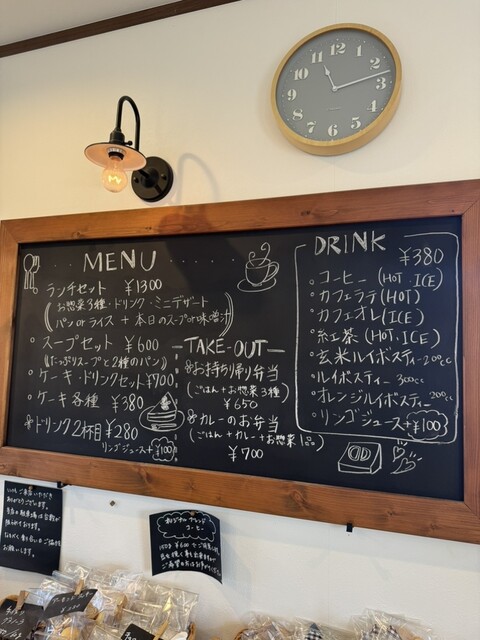 12
1
2
3
4
5
6
7
8
9
10
11
MENU
ランチセット ¥1300
(お惣菜3種・ドリンク・ミニデザート
パン or ライス + 本日のスープ or 味噌汁)
スープセット ¥600
(たっぷりスープと2種のパン)
ケーキ・ドリンクセット ¥700
ケーキ各種 ¥380
ドリンク2杯目 ¥280
リンゴジュース+¥100
TAKE-OUT
お持ち帰り弁当
(ごはん+お惣菜3種)
¥650
カレーのお弁当
(ごはん+カレー+お惣菜1コ)
¥700
DRINK
¥380
コーヒー (HOT, ICE)
カフェラテ (HOT)
カフェオレ (ICE)
紅茶 (HOT, ICE)
玄米ルイボスティー 200cc
ルイボスティー 300cc
オレンジルイボスティー 200cc
リンゴジュース+¥100
いつもご来店いただき
ありがとうございます。
お願いします。
オリジナルブレンド
コーヒー